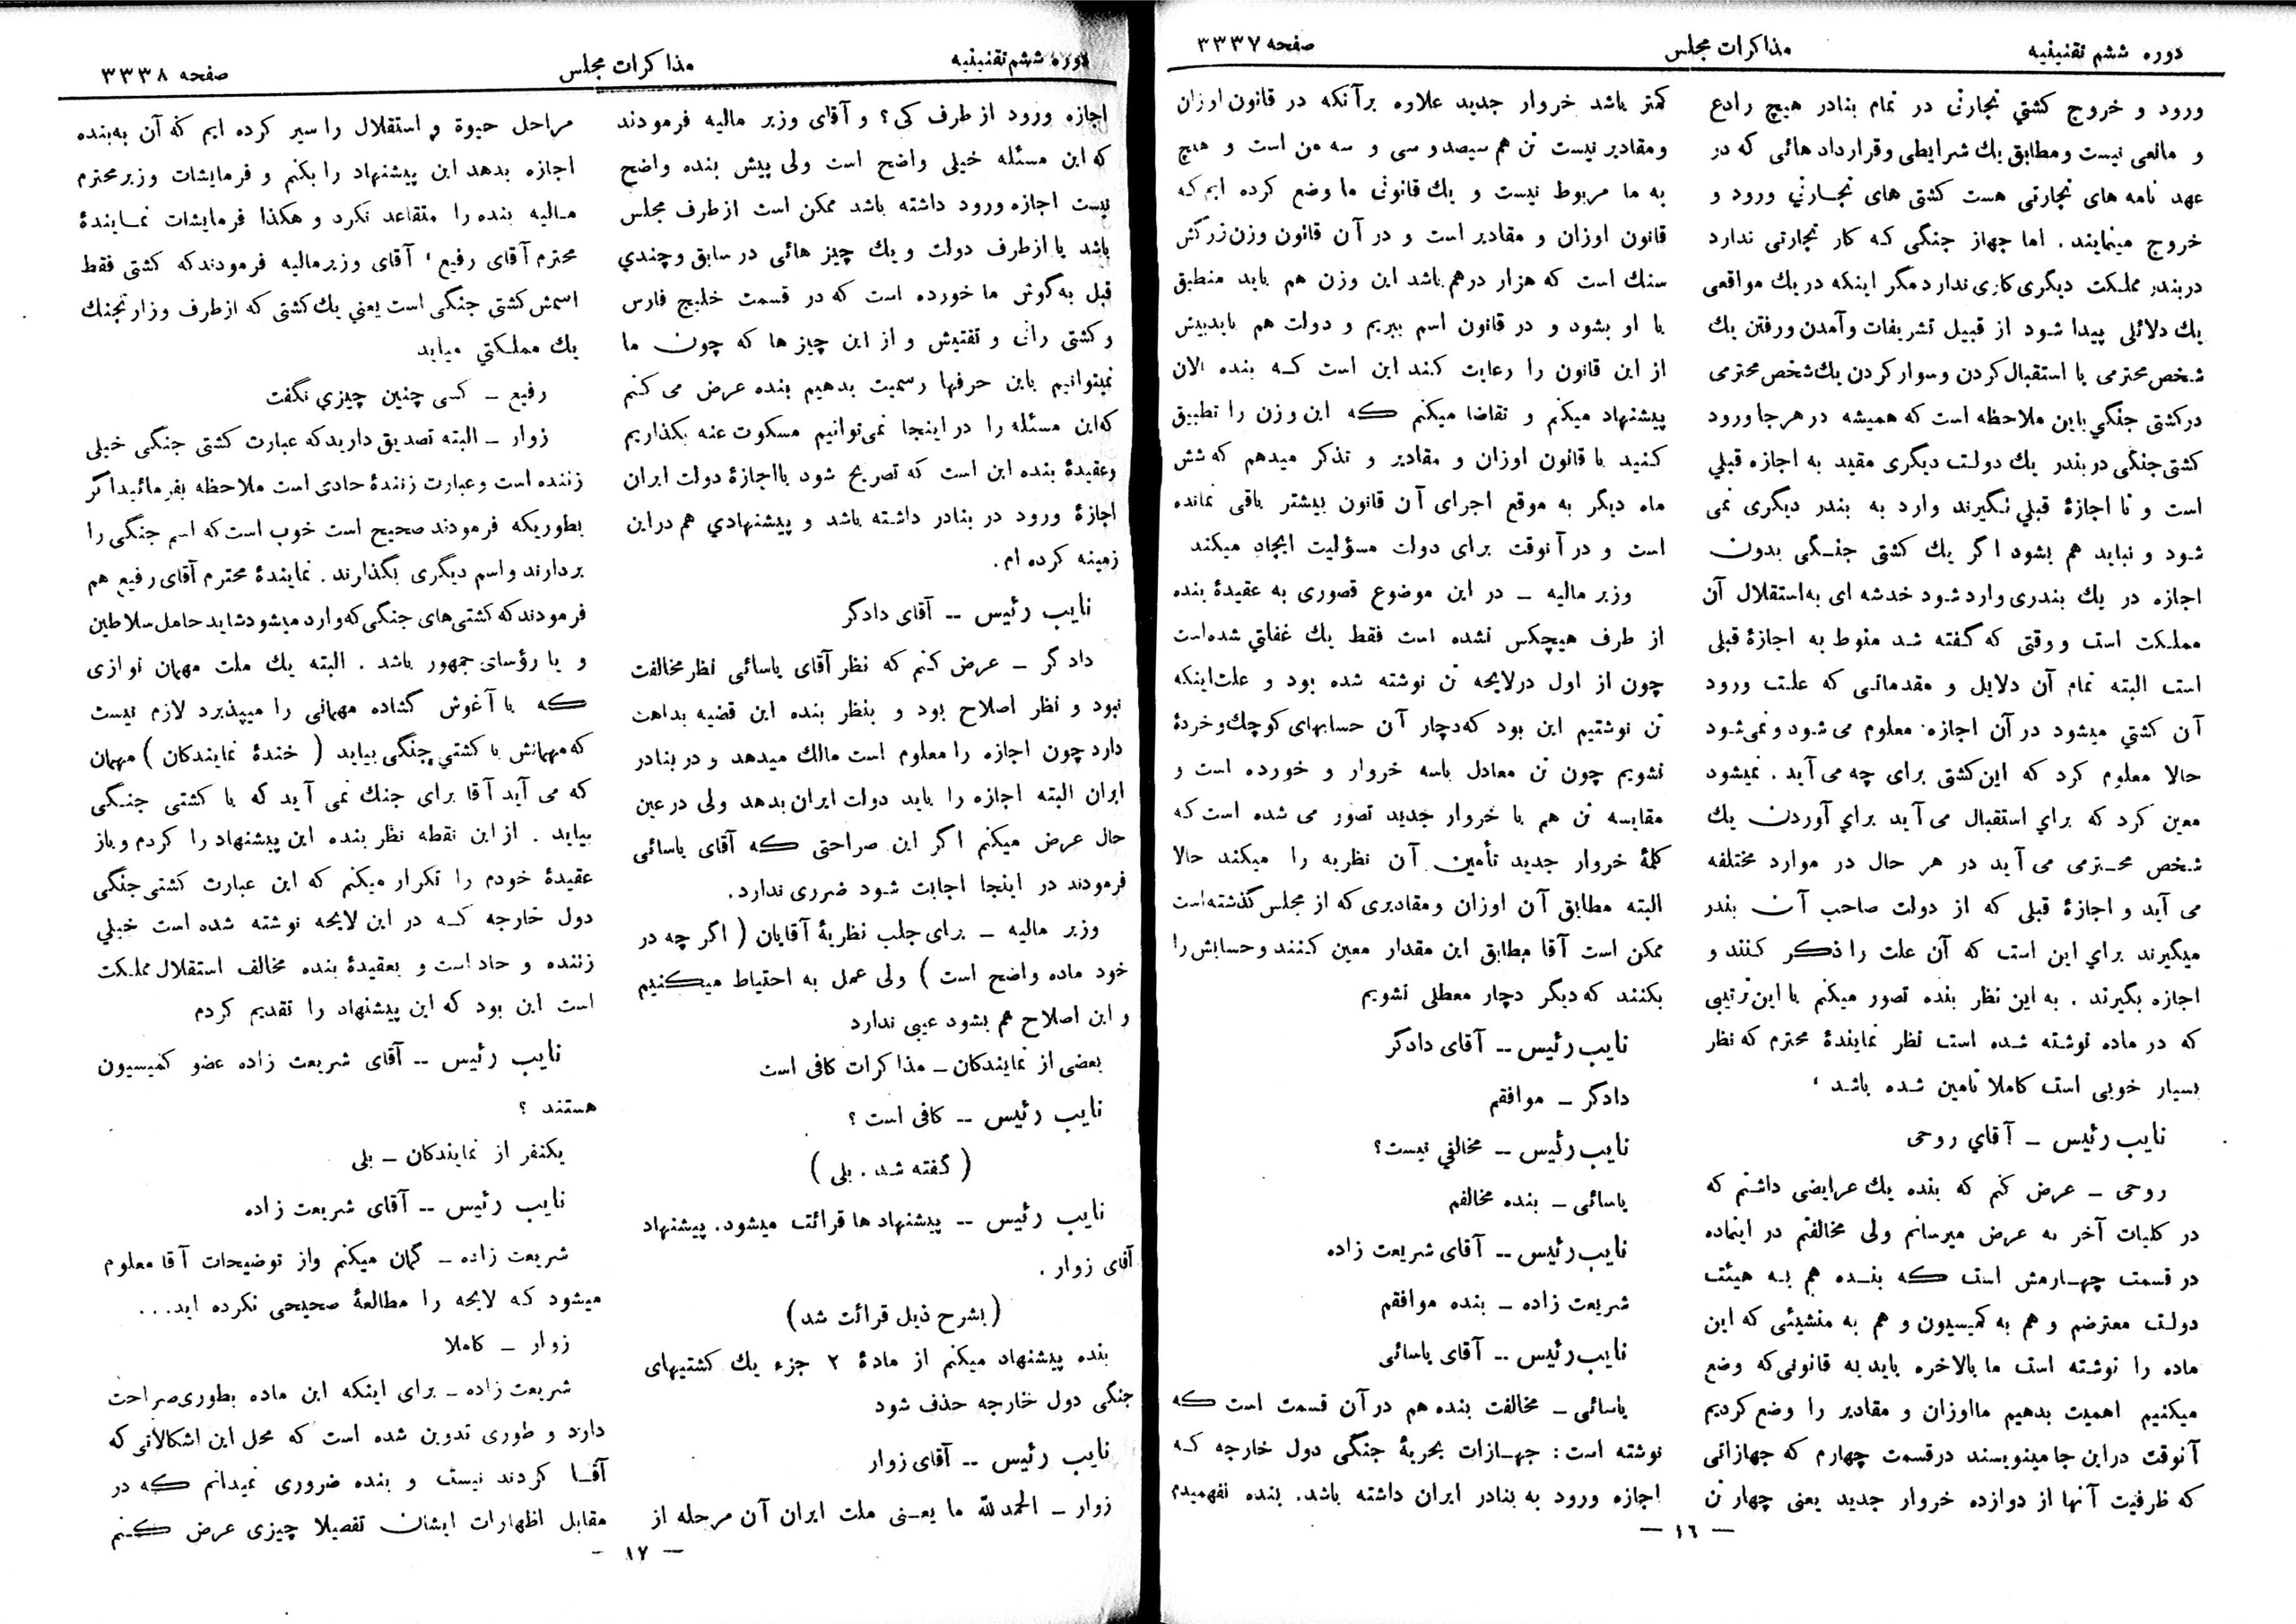 دوره ششم تقنینیه
مذاکرات مجلس
صفحه ۳۳۳۷
ورود و خروج کشتي تجارتی در تمام بنادر هیچ رادع
و مانعی نیست و مطابق یك شرایطی و قرارداد هائی که در
عهد نامه های تجارتی هست کشتی های تجارتي ورود و
خروج مینمایند . اما جهاز جنگی که کار تجارتی ندارد
در بندر مملکت دیگری کاری ندارد مگر اینکه در یك مواقعی
یك دلائلی پیدا شود از قبیل تشریفات و آمدن و رفتن یك
شخص محترمی یا استقبال کردن و سوار کردن یك شخص محترمی
در کشتی جنگي باین ملاحظه است که همیشه در هر جا ورود
کشتی جنگی در بندر یك دولت دیگری مقید به اجازه قبلي
است و تا اجازهٔ قبلي نگیرند وارد به بندر دیگری نمی
شود و نباید هم بشود اگر یك کشتی جنگی بدون
اجازه در یك بندری وارد شود خدشه ای به استقلال آن
مملکت است و وقتی که گفته شد منوط به اجازهٔ قبلی
است البته تمام آن دلایل و مقدماتی که علت ورود
آن کشتي میشود در آن اجازه معلوم می شود و نمی‌شود
حالا معلوم کرد که این کشتی برای چه می آید . نمیشود
معین کرد که براي استقبال می آید براي آوردن یك
شخص محترمی می آید در هر حال در موارد مختلفه
می آید و اجازهٔ قبلی که از دولت صاحب آن بندر
میگیرند براي این است که آن علت را ذکر کنند و
اجازه بگیرند . به این نظر بنده تصور میکنم با این ترتیبی
که در ماده نوشته شده است نظر نمایندهٔ محترم که نظر
بسیار خوبی است کاملا تامین شده باشد ،
نایب رئیس ـ آقاي روحی
روحی ـ عرض کنم که بنده یك عرایضی داشتم که
در کلیات آخر به عرض میرسانم ولی مخالفتم در اینماده
در قسمت چهارمش است که بنده هم به هیئت
دولت معترضم و هم به کمیسیون و هم به منشیئی که این
ماده را نوشته است ما بالاخره باید به قانونی که وضع
میکنیم اهمیت بدهیم ما اوزان و مقادیر را وضع کردیم
آنوقت در این جا مینویسند در قسمت چهارم که جهازاتی
که ظرفیت آنها از دوازده خروار جدید یعنی چهار تن
کمتر باشد خروار جدید علاوه بر آنکه در قانون اوزان
و مقادیر نیست تن هم سیصد و سی و سه من است و هیچ
به ما مربوط نیست و یك قانونی ما وضع کرده ایم که
قانون اوزان و مقادیر است و در آن قانون وزن زرکش
سنك است که هزار درهم باشد این وزن هم باید منطبق
با او بشود و در قانون اسم ببریم و دولت هم باید بیش
از این قانون را رعایت کند این است که بنده الان
پیشنهاد میکنم و تقاضا میکنم که این وزن را تطبیق
کنید با قانون اوزان و مقادیر و تذکر میدهم که شش
ماه دیگر به موقع اجرای آن قانون بیشتر باقی نمانده
است و در آنوقت برای دولت مسؤلیت ایجاد میکند
وزیر مالیه ـ در این موضوع قصوری به عقیدهٔ بنده
از طرف هیچکس نشده است فقط یك غفلتي شده است
چون از اول در لایحه تن نوشته شده بود و علت اینکه
تن نوشتیم این بود که دچار آن حسابهای کوچك و خردهٔ
نشویم چون تن معادل باسه خروار و خورده است و
مقایسه تن هم با خروار جدید تصور می شده است که
کلمهٔ خروار جدید تأمین آن نظریه را میکند حالا
البته مطابق آن اوزان و مقادیری که از مجلس گذشته است
ممکن است آقا مطابق این مقدار معین کنند و حسابش را
بکنند که دیگر دچار معطلی نشویم
نایب رئیس -- آقای دادگر
دادگر ـ موافقم
نایب رئیس -- مخالفي نیست؟
یاسائی ـ بنده مخالفم
نایب رئیس -- آقای شریعت زاده
شریعت زاده ـ بنده موافقم
نایب رئیس -- آقای یاسائی
یاسائی ـ مخالفت بنده هم در آن قسمت است که
نوشته است : جهازات بحریهٔ جنگی دول خارجه که
اجازه ورود به بنادر ایران داشته باشد. بنده نفهمیدم
— ۱۶ —
دوره ششم تقنینیه
مذاکرات مجلس
صفحه ۳۳۳۸
اجازه ورود از طرف کی؟ و آقای وزیر مالیه فرمودند
که این مسئله خیلی واضح است ولی پیش بنده واضح
نیست اجازه ورود داشته باشد ممکن است از طرف مجلس
باشد یا از طرف دولت و یك چیز هائی در سابق و چندي
قبل به گوش ما خورده است که در قسمت خلیج فارس
و کشتی رانی و تفتیش و از این چیز ها که چون ما
نمیتوانیم باین حرفها رسمیت بدهیم بنده عرض می کنم
که این مسئله را در اینجا نمی‌توانیم مسکوت عنه بگذاریم
و عقیدهٔ بنده این است که تصریح شود با اجازهٔ دولت ایران
اجازهٔ ورود در بنادر داشته باشد و پیشنهادي هم در این
زمینه کرده ام .
نایب رئیس -- آقای دادگر
دادگر ـ عرض کنم که نظر آقای یاسائی نظر مخالفت
نبود و نظر اصلاح بود و بنظر بنده این قضیه بداهت
دارد چون اجازه را معلوم است مالك میدهد و در بنادر
ایران البته اجازه را باید دولت ایران بدهد ولی در عین
حال عرض میکنم اگر این صراحتی که آقای یاسائی
فرمودند در اینجا اجابت شود ضرری ندارد.
وزیر مالیه ـ برای جلب نظریهٔ آقایان ( اگر چه در
خود ماده واضح است ) ولی عمل به احتیاط میکنیم
و این اصلاح هم بشود عیبی ندارد
بعضی از نمایندگان ـ مذاکرات کافی است
نایب رئیس -- کافی است ؟
( گفته شد . بلی )
نایب رئیس -- پیشنهاد ها قرائت میشود. پیشنهاد
آقای زوار .
(بشرح ذیل قرائت شد)
بنده پیشنهاد میکنم از مادهٔ ۲ جزء یك کشتیهای
جنگی دول خارجه حذف شود
نایب رئیس -- آقای زوار
زوار ـ الحمدلله ما یعنی ملت ایران آن مرحله از
مراحل حیوة و استقلال را سیر کرده ایم که آن به بنده
اجازه بدهد این پیشنهاد را بکنم و فرمایشات وزیر محترم
مالیه بنده را متقاعد نکرد و هکذا فرمایشات نمایندهٔ
محترم آقای رفیع ، آقای وزیر مالیه فرمودند که کشتی فقط
اسمش کشتی جنگی است یعني یك کشتی که از طرف وزارتجنك
یك مملکتي میاید
رفیع ـ کسی چنین چیزي نگفت
زوار ـ البته تصدیق دارید که عبارت کشتی جنگی خیلی
زننده است و عبارت زنندهٔ حادی است ملاحظه بفرمائید اگر
بطوریکه فرمودند صحیح است خوب است که اسم جنگی را
بردارند و اسم دیگری بگذارند . نمایندهٔ محترم آقای رفیع هم
فرمودند که کشتی های جنگی که وارد میشود شاید حامل سلاطین
و یا رؤسای جمهور باشد . البته یك ملت مهمان نوازی
که با آغوش گشاده مهمانی را میپذیرد لازم نیست
که مهمانش با کشتی جنگی بیاید ( خندهٔ نمایندکان ) مهمان
که می آید آقا برای جنك نمی آید که با کشتی جنگی
بیاید . از این نقطه نظر بنده این پیشنهاد را کردم و باز
عقیدهٔ خودم را تکرار میکنم که این عبارت کشتی جنگی
دول خارجه که در این لایحه نوشته شده است خیلي
زننده و حاد است و بعقیدهٔ بنده مخالف استقلال مملکت
است این بود که این پیشنهاد را تقدیم کردم
نایب رئیس -- آقای شریعت زاده عضو کمیسیون
هستند ؟
یکنفر از نمایندکان ـ بلی
نایب رئیس -- آقای شریعت زاده
شریعت زاده ـ گمان میکنم واز توضیحات آقا معلوم
میشود که لایحه را مطالعهٔ صحیحی نکرده اید...
زوار ـ کاملا
شریعت زاده ـ برای اینکه این ماده بطوری صراحت
دارد و طوری تدوین شده است که محل این اشکالاتی که
آقا کردند نیست و بنده ضروری نمیدانم که در
مقابل اظهارات ایشان تفصیلا چیزی عرض کنم
— ۱۷ -